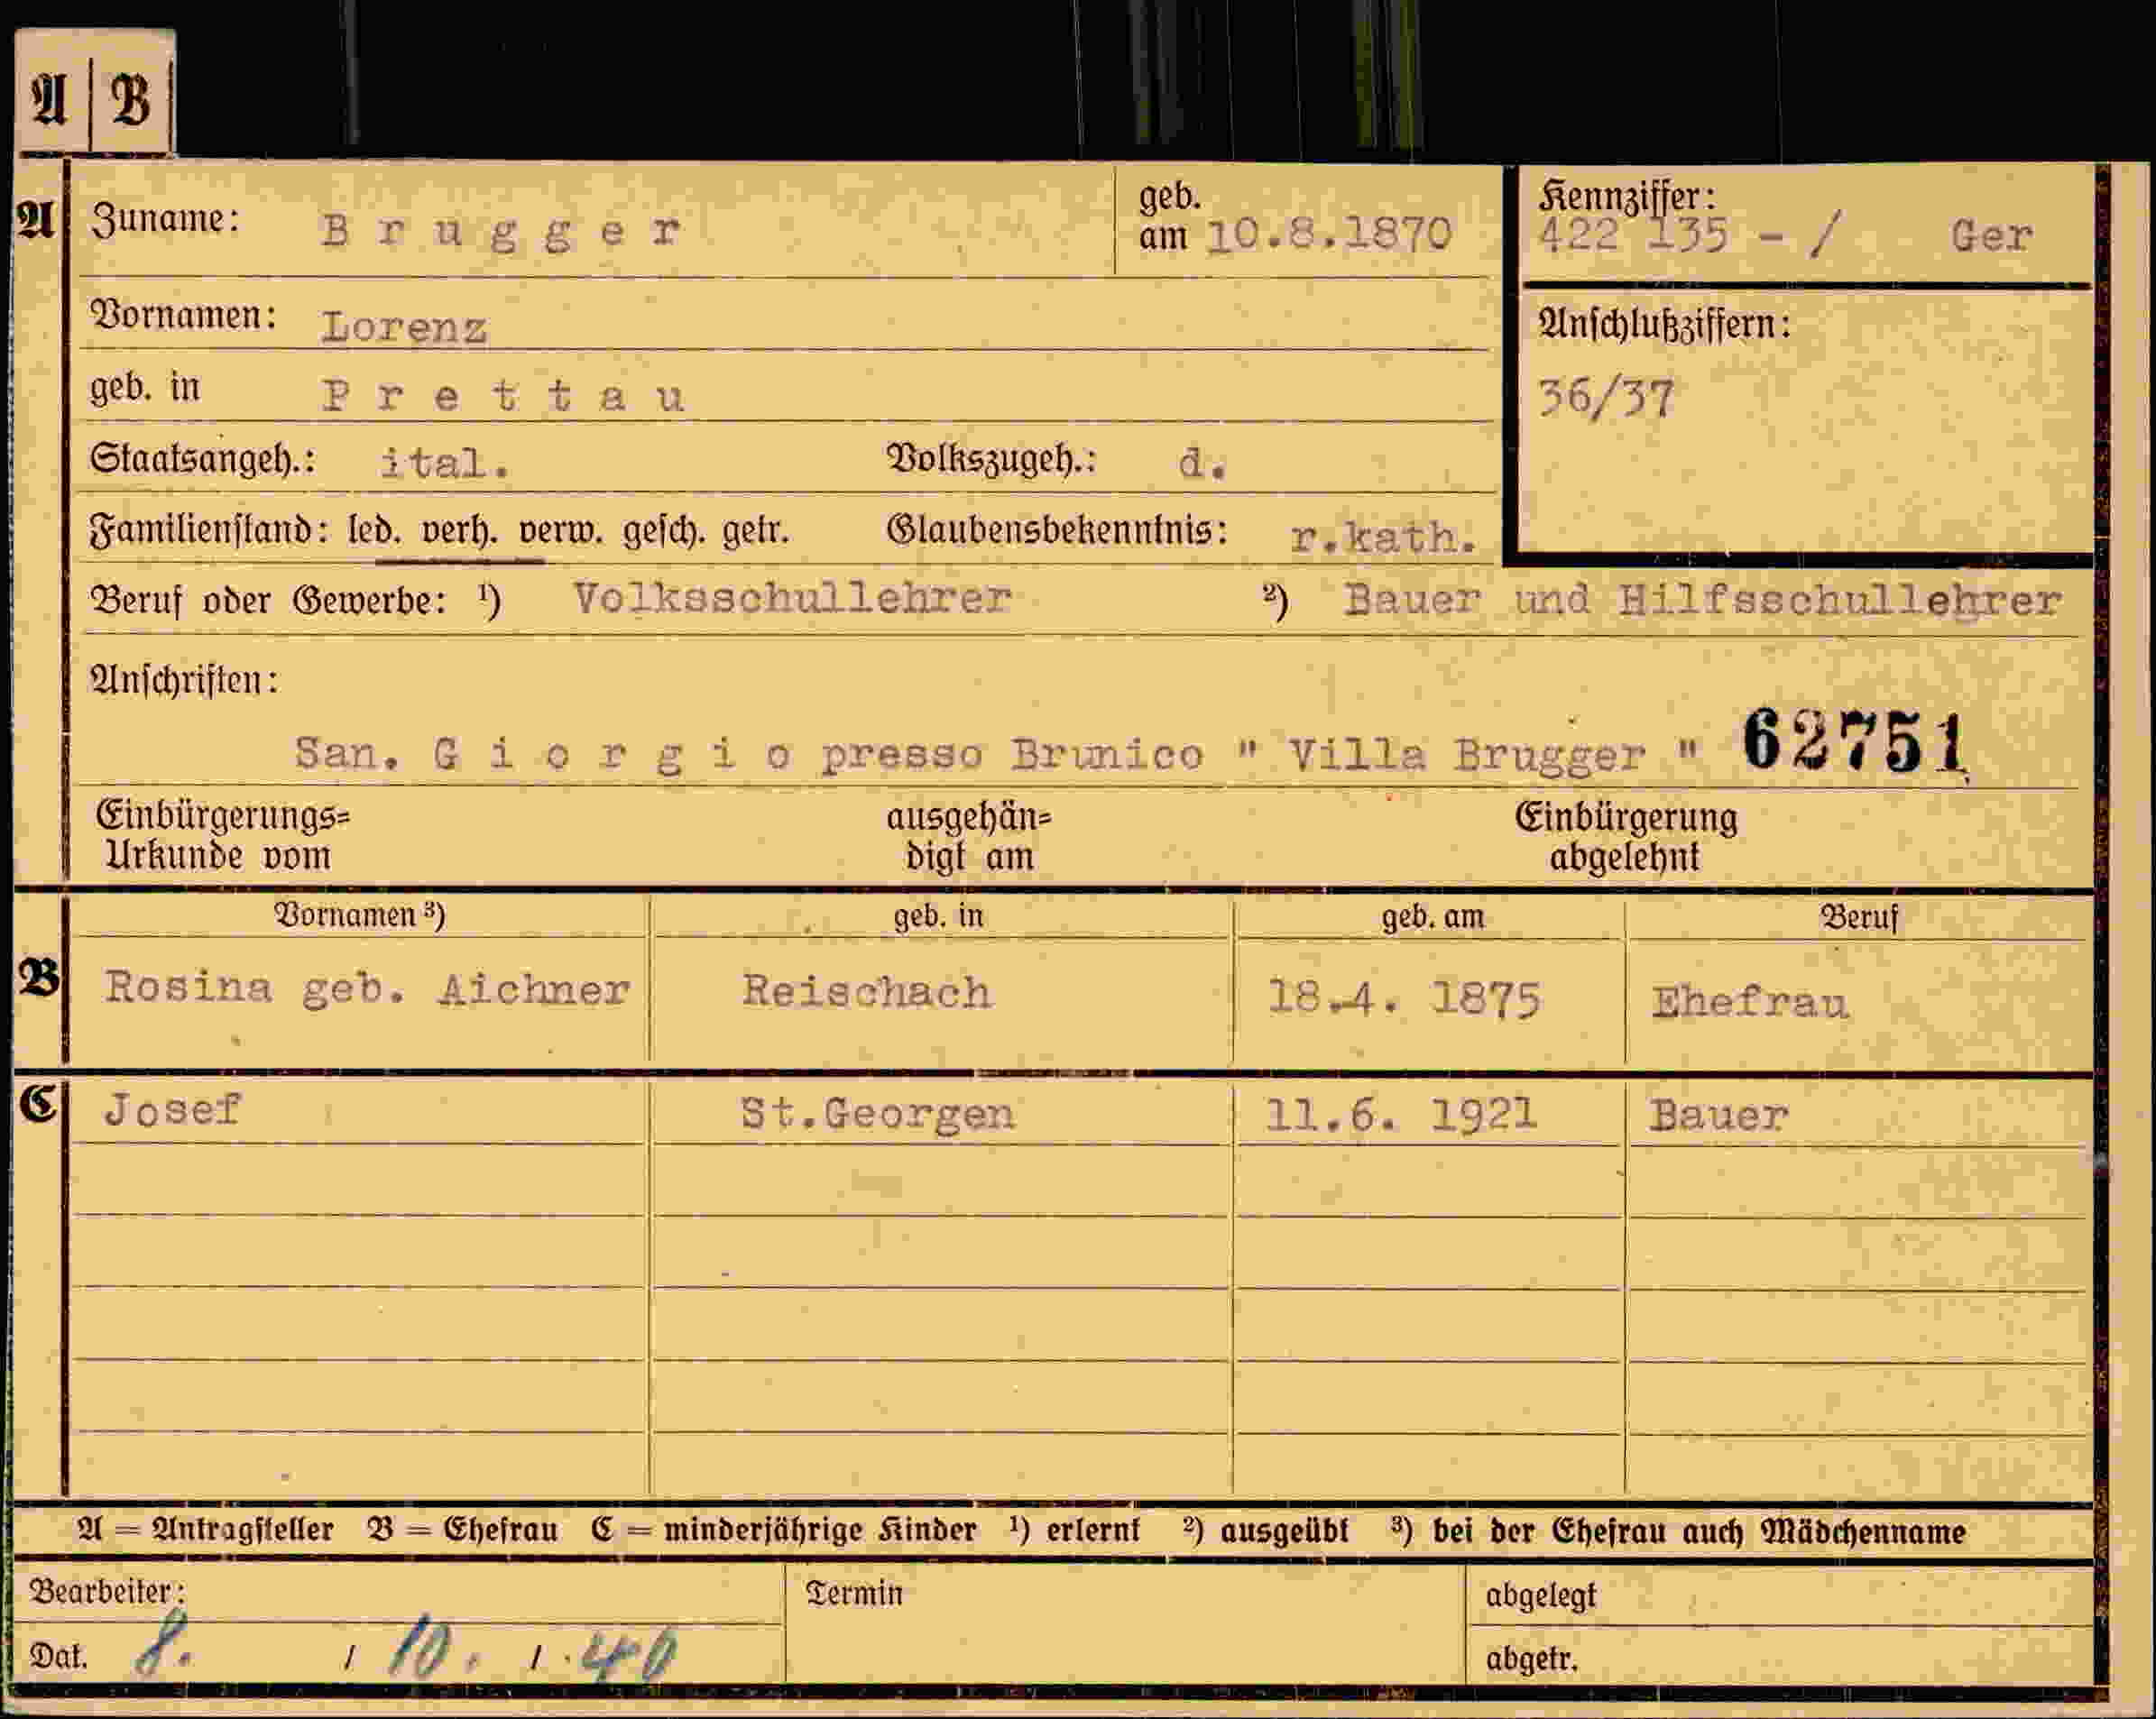 A B
A Zuname: Brugger geb. am 10.8.1870 Kennziffer: 422 135 - / Ger
Vornamen: Lorenz Anschlußziffern:
geb. in Prettau 36/37
Staatsangeh.: ital. Volkszugeh.: d.
Familienstand: led. verh. verw. gesch. getr. Glaubensbekenntnis: r.kath.
Beruf oder Gewerbe: ¹) Volksschullehrer ²) Bauer und Hilfsschullehrer
Anschriften:
San. Giorgio presso Brunico " Villa Brugger " 62751
Einbürgerungs= ausgehän= Einbürgerung
Urkunde vom digt am abgelehnt
Vornamen ³) geb. in geb. am Beruf
B Rosina geb. Aichner Reischach 18.4. 1875 Ehefrau
C Josef St.Georgen 11.6. 1921 Bauer
A = Antragsteller B = Ehefrau C = minderjährige Kinder ¹) erlernt ²) ausgeübt ³) bei der Ehefrau auch Mädchenname
Bearbeiter: Termin abgelegt
Dat. 8. / 10. / 40 abgetr.